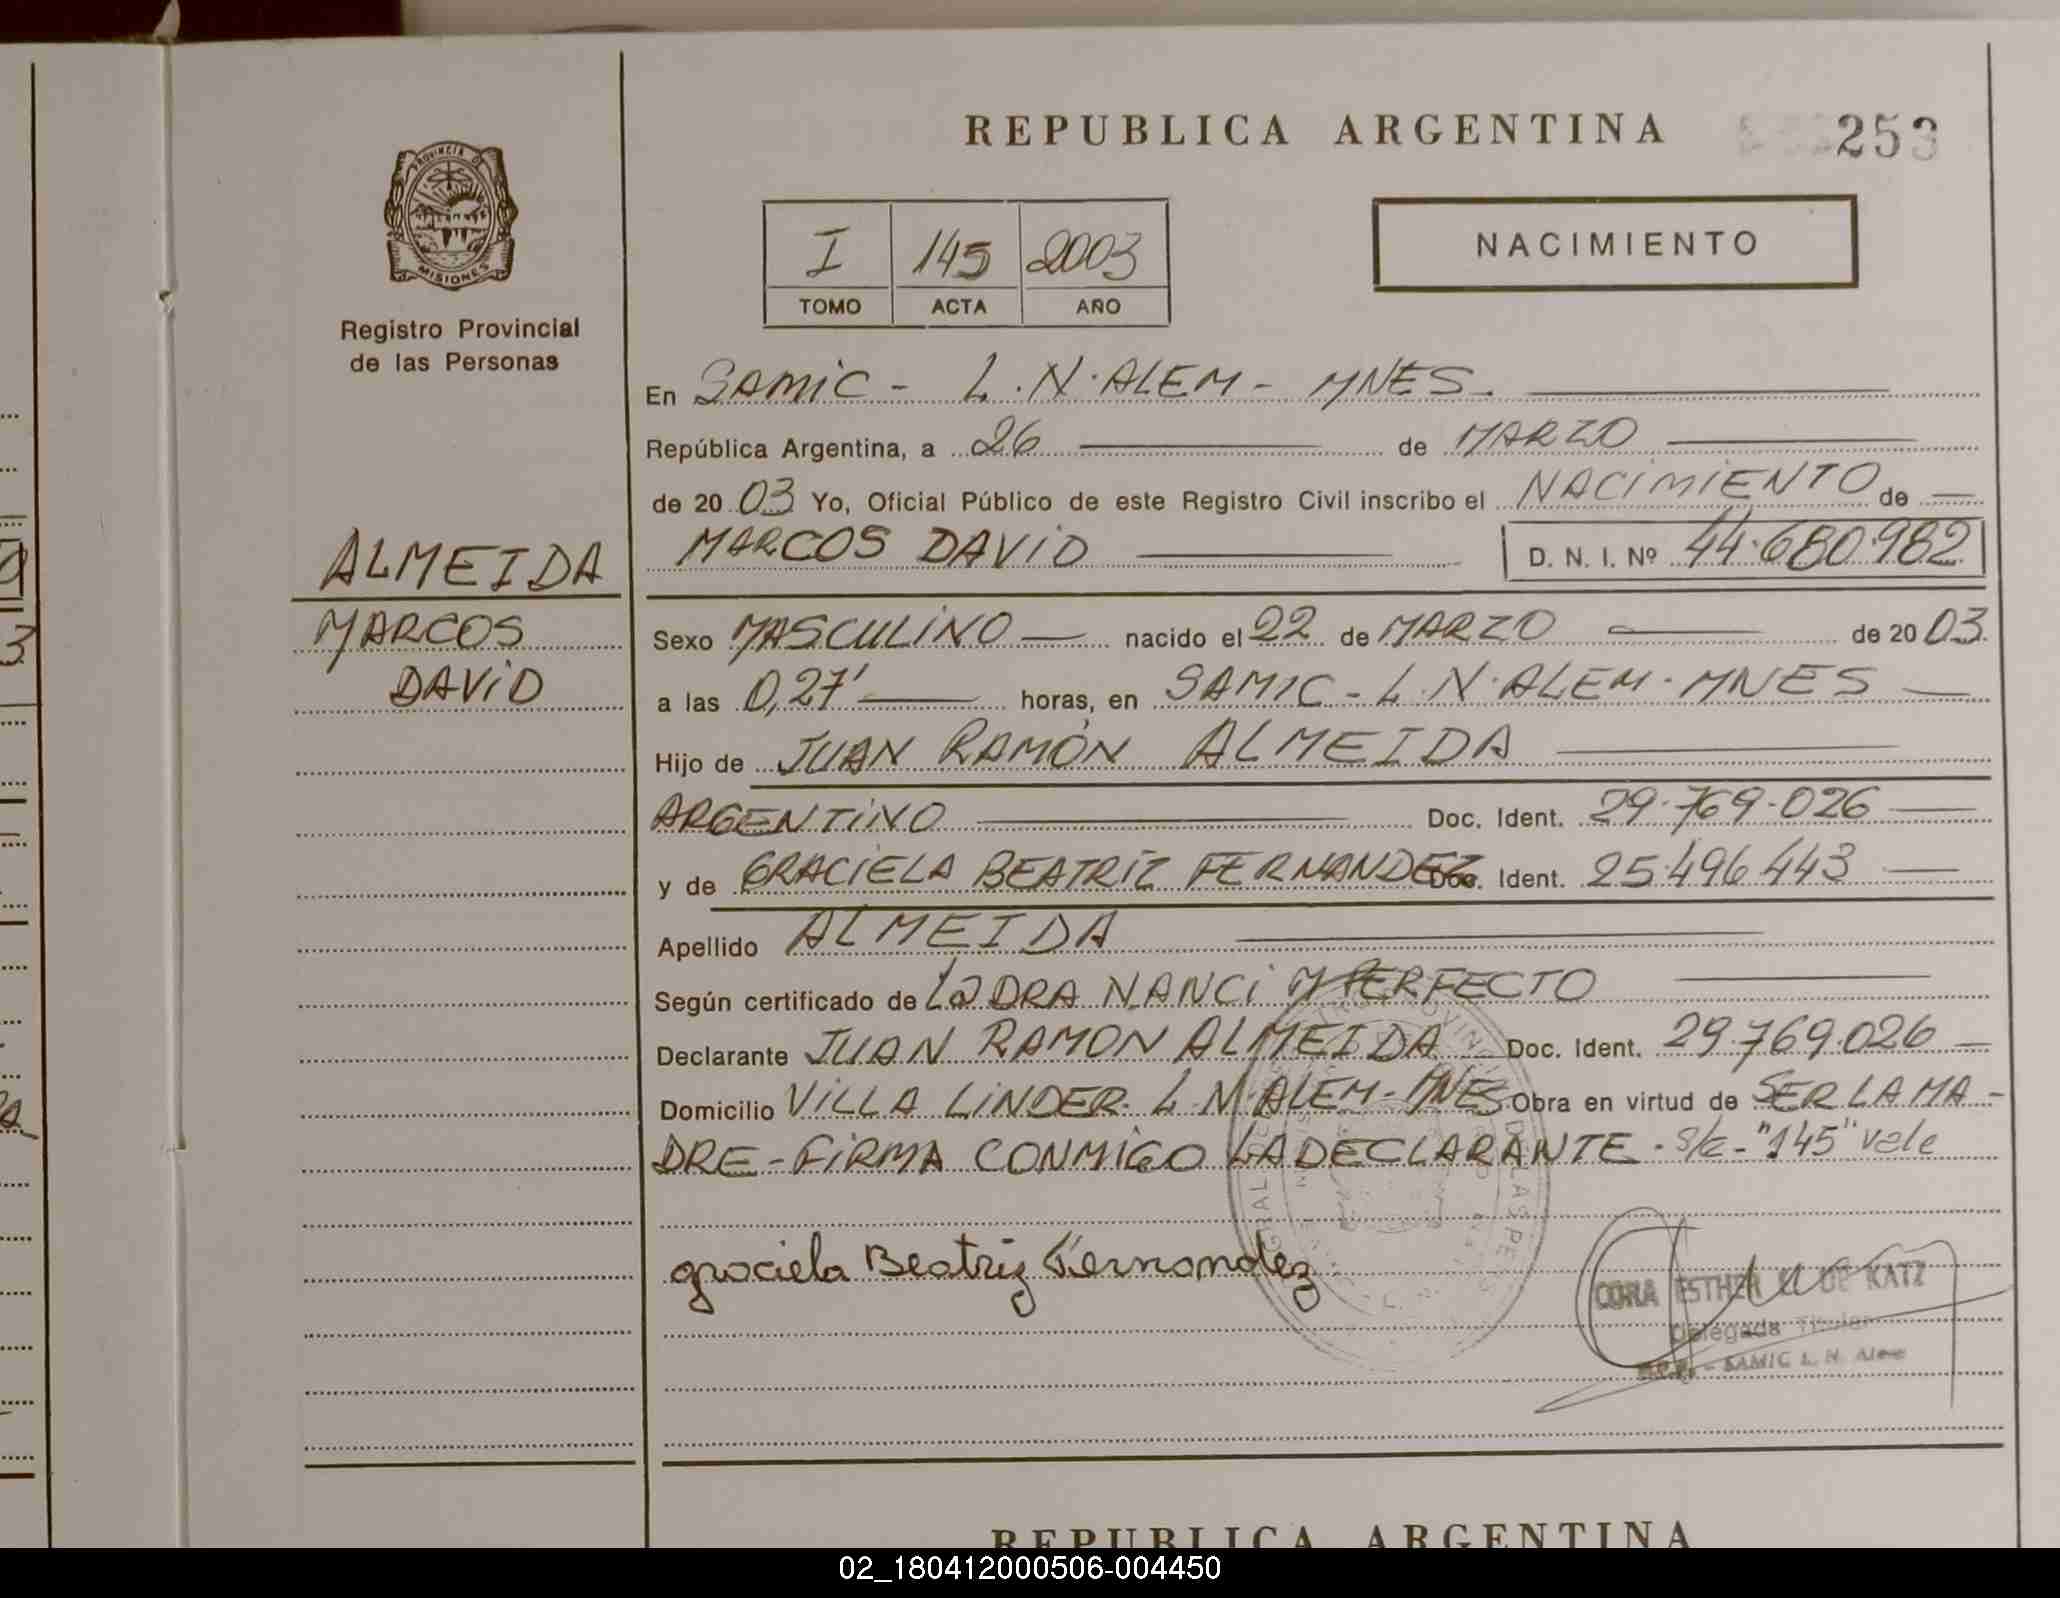 REPUBLICA ARGENTINA
253
PROVINCIA DE
MISIONES
Registro Provincial
de las Personas
I 145 2003
TOMO ACTA AÑO
NACIMIENTO
En SAMIC - L.N.ALEM - MNES.
República Argentina, a 26 de MARZO
de 20 03 Yo, Oficial Público de este Registro Civil inscribo el NACIMIENTO de
MARCOS DAVID D. N. I. Nº 44.680.982
ALMEIDA
MARCOS
DAVID
Sexo MASCULINO nacido el 22 de MARZO de 20 03.
a las 0,27' horas, en SAMIC - L.N.ALEM. MNES
Hijo de JUAN RAMÓN ALMEIDA
ARGENTINO Doc. Ident. 29.769.026
y de GRACIELA BEATRIZ FERNANDEZ Doc. Ident. 25.496.443
Apellido ALMEIDA
Según certificado de La DRA NANCI M PERFECTO
Declarante JUAN RAMON ALMEIDA Doc. Ident. 29.769.026
Domicilio VILLA LINDER. L.N.ALEM - MNES Obra en virtud de SER LA MA-
DRE - FIRMA CONMIGO LA DECLARANTE. "145" vale
graciela Beatriz Fernandez
CORA ESTHER DE KATZ
Delegada Titular
SAMIC L. N. Alem
REPUBLICA ARGENTINA
02_180412000506-004450